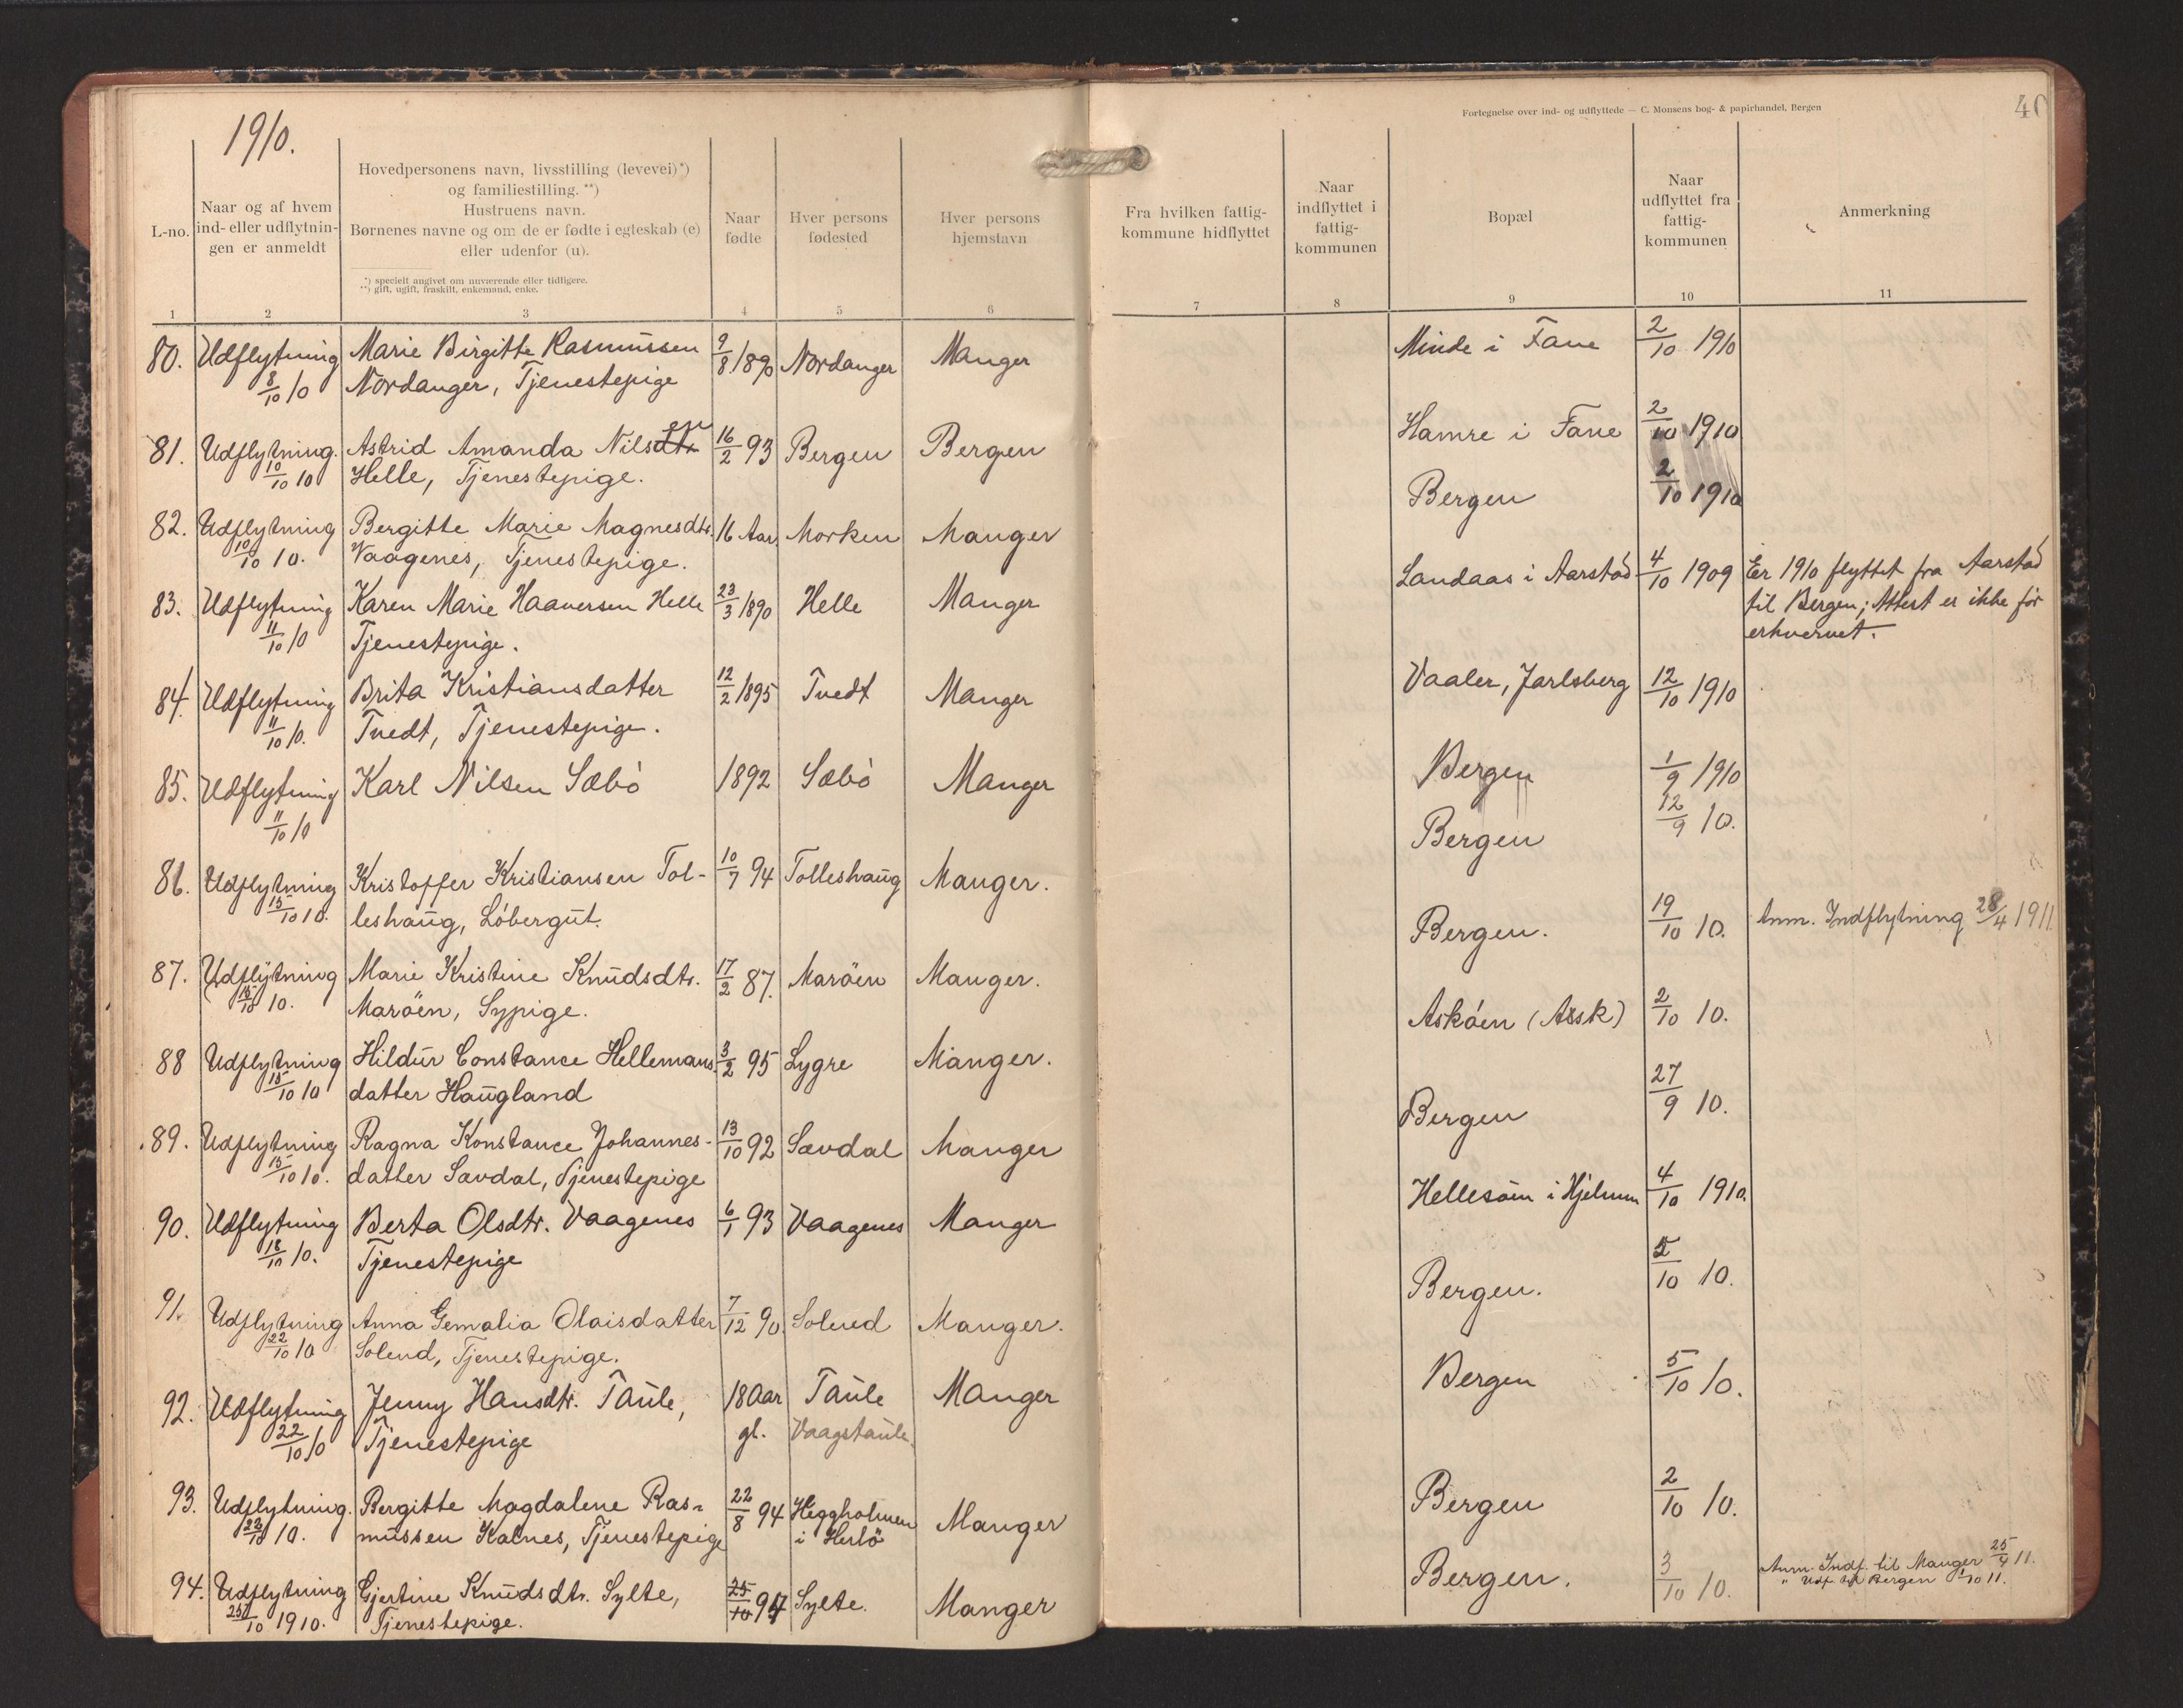 1910.
L-no.
Naar og af hvem
ind- eller udflytnin-
gen er anmeldt
Hovedpersonens navn, livsstilling (levevei)*)
og familiestilling. **)
Hustruens navn.
Børnenes navne og om de er fødte i egteskab (e)
eller udenfor (u).
*) specielt angivet om nuværende eller tidligere.
**) gift, ugift, fraskilt, enkemand, enke.
Naar
fødte
Hver persons
fødested
Hver persons
hjemstavn
1 2 3 4 5 6
80. Udflytning Marie Birgitte Rasmussen 9/8 1890 Nordanger Manger
8/10 10 Nordanger, Tjenestepige
81. Udflytning. Astrid Amanda Nilsdtr sen 16/2 93 Bergen Bergen
10/10 10 Helle, Tjenestepige.
82. Udflytning Bergitte Marie Magnesdtr. 16 Aar. Morken Manger
10/10 10. Vaagenes, Tjenestepige.
83. Udflytning Karen Marie Haaversen Helle 23/3 1890 Helle Manger
11/10 10 Tjenestepige.
84. Udflytning Brita Kristiansdatter 12/2 1895 Tvedt Manger
11/10 10. Tvedt, Tjenestepige.
85. Udflytning Karl Nilsen Sæbö 1892 Sæbö Manger
11/10 10
86. Udflytning Kristoffer Kristiansen Tol- 10/7 94 Tolleshaug Manger.
15/10 10. leshaug, Löbergut.
87. Udflytning Marie Kristine Knudsdtr. 17/2 87. Maröen Manger.
15/10 10. Maröen, Sypige.
88 Udflytning Hildur Constance Hellemans 3/2 95 Lygre Manger.
15/10 10 datter Haugland
89. Udflytning Ragna Konstance Johannes- 13/10 92 Sævdal Manger
15/10 10. datter Sævdal, Tjenestepige
90. Udflytning Berta Olsdtr. Vaagenes 6/1 93 Vaagenes Manger
18/10 10. Tjenestepige
91. Udflytning Anna Gemalia Olaisdatter 7/12 90. Solend Manger.
22/10 10 Solend, Tjenestepige.
92. Udflytning Jenny Hansdtr. Taule, 18 Aar Taule Manger
22/10 10 Tjenestepige gl. Vaagstaule.
93. Udflytning. Bergitte Magdalene Ras- 22/8 94 Heggholmen Manger
22/10 10. mussen Kalnes, Tjenestepige i Herlö
94. Udflytning Gjertine Knudsdtr. Sylte, 25/10 94 Sylte. Manger
25/10 1910. Tjenestepige.
Fortegnelse over ind- og udflyttede — C. Monsens bog- & papirhandel, Bergen
40
Fra hvilken fattig-
kommune hidflyttet
Naar
indflyttet i
fattig-
kommunen
Bopæl
Naar
udflyttet fra
fattig-
kommunen
Anmerkning
7 8 9 10 11
Minde i Fane 2/10 1910
Hamre i Fane 2/10 1910
Bergen 2/10 1910
Landaas i Aarstad 4/10 1909 Er 1910 flyttet fra Aarstad
til Bergen; Attest er ikke før
erhvervet.
Vaaler, Jarlsberg 12/10 1910
Bergen 1/9 1910
Bergen 12/9 10.
Bergen. 19/10 10. Anm. Indflytning 28/4 1911
Asköen (Assk) 2/10 10.
Bergen 27/9 10.
Hellesöen i Hjelmm 4/10 1910.
Bergen. 5/10 10.
Bergen 5/10 10.
Bergen 2/10 10.
Bergen. 3/10 10. Anm. Indf. til Manger 25/4 11.
" Udf. til Bergen 1/10 11.